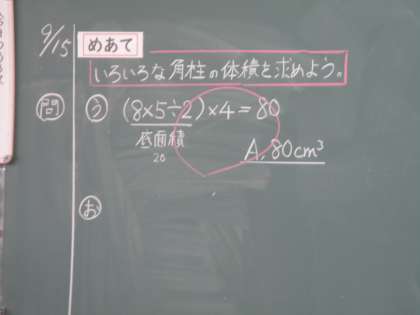 9/15
めあて
いろいろな角柱の体積を求めよう。
問
う (8×5÷2)×4=80
底面積
20
A. 80cm³
お